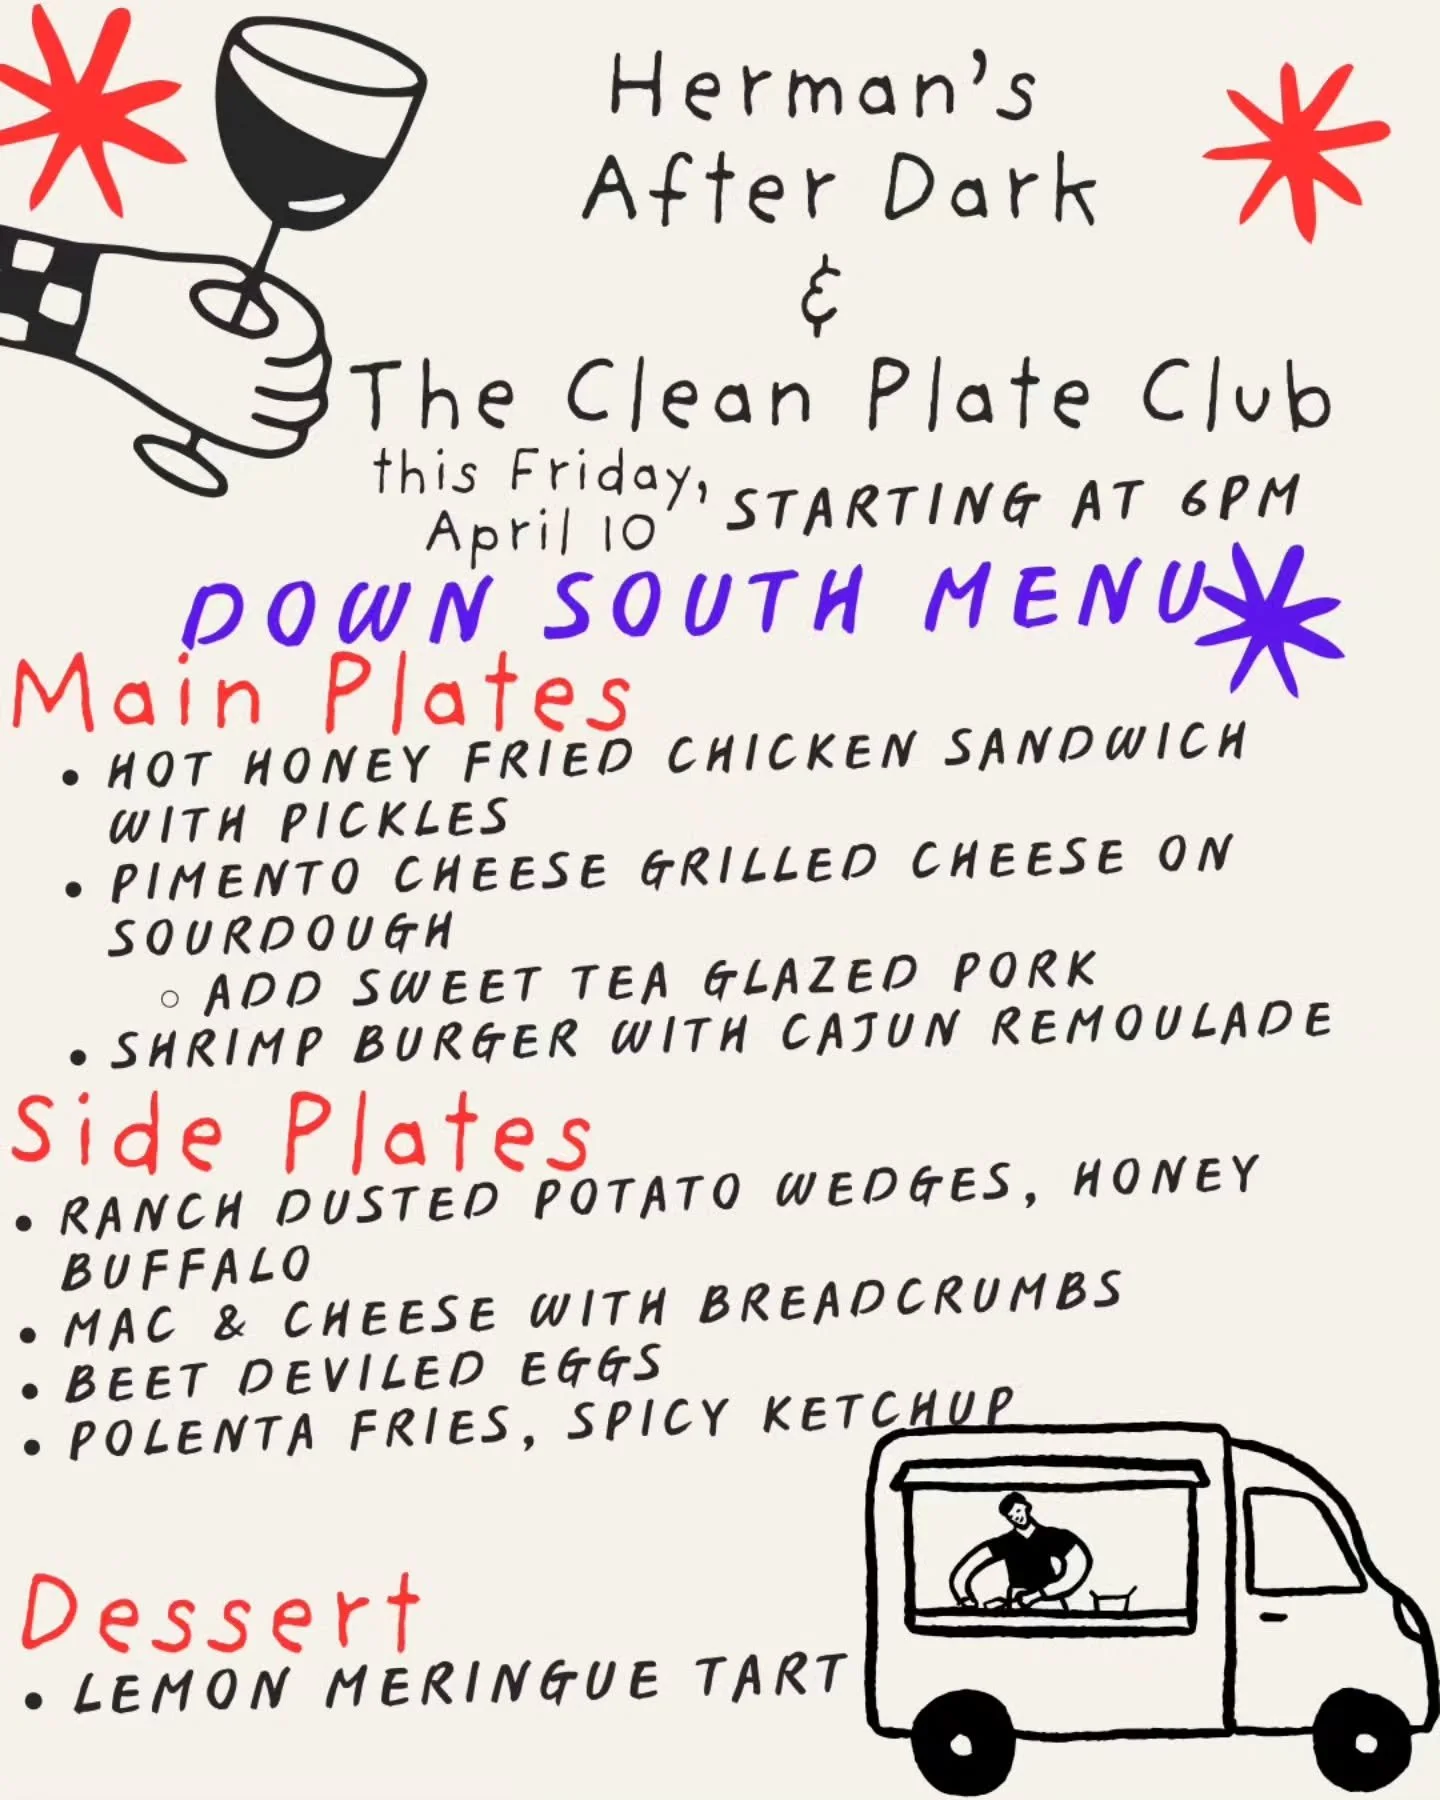 Herman's
After Dark
&
The Clean Plate Club
this Friday,
April 10
STARTING AT 6PM
DOWN SOUTH MENU
Main Plates
• HOT HONEY FRIED CHICKEN SANDWICH
WITH PICKLES
• PIMENTO CHEESE GRILLED CHEESE ON
SOURDOUGH
○ ADD SWEET TEA GLAZED PORK
• SHRIMP BURGER WITH CAJUN REMOULADE
Side Plates
• RANCH DUSTED POTATO WEDGES, HONEY
BUFFALO
• MAC & CHEESE WITH BREADCRUMBS
• BEET DEVILED EGGS
• POLENTA FRIES, SPICY KETCHUP
Dessert
• LEMON MERINGUE TART